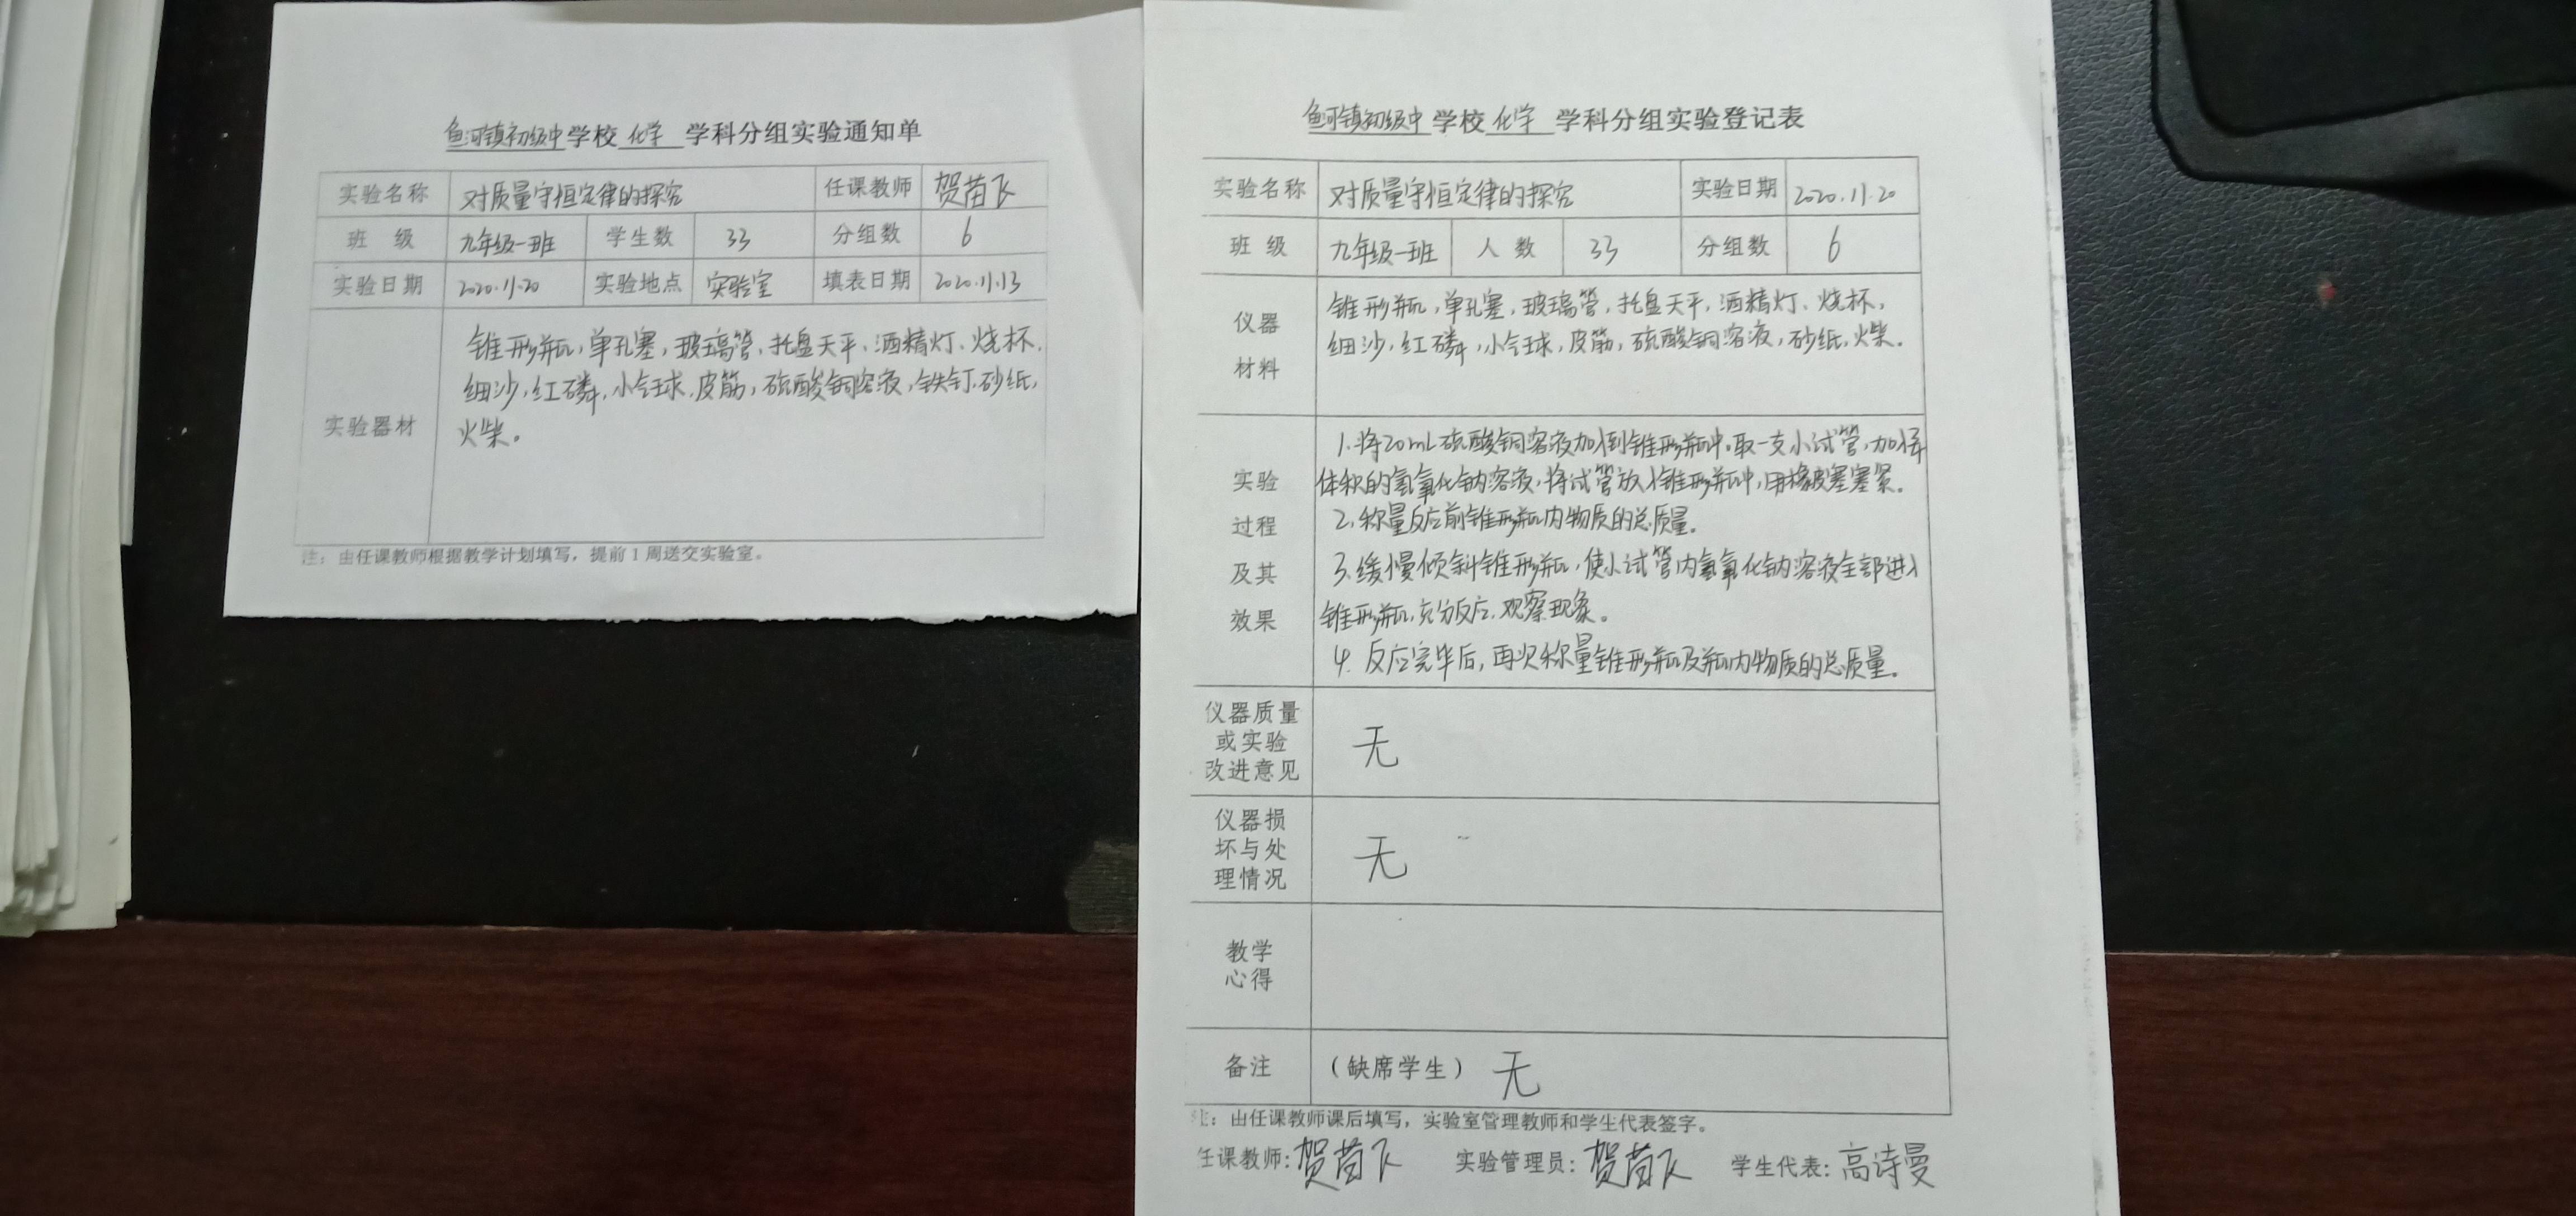 鱼河镇初级中学校 化学 学科分组实验通知单
实验名称 对质量守恒定律的探究 任课教师 贺苗飞
班 级 九年级一班 学生数 33 分组数 6
实验日期 2020.11.20 实验地点 实验室 填表日期 2020.11.13
实验器材
锥形瓶,单孔塞,玻璃管、托盘天平、酒精灯、烧杯、
细沙,红磷,小气球,皮筋,硫酸铜溶液,铁钉,砂纸,
火柴。
注:由任课教师根据教学计划填写,提前1周送交实验室。
鱼河镇初级中学校 化学 学科分组实验登记表
实验名称 对质量守恒定律的探究 实验日期 2020.11.20
班 级 九年级一班 人 数 33 分组数 6
仪器
材料
锥形瓶,单孔塞,玻璃管,托盘天平,酒精灯、烧杯,
细沙,红磷,小气球,皮筋,硫酸铜溶液,砂纸,火柴.
实验
过程
及其
效果
1.将20mL硫酸铜溶液加倒锥形瓶中.取一支小试管,加入等
体积的氢氧化钠溶液,将试管放入锥形瓶中,用橡皮塞塞紧.
2.称量反应前锥形瓶内物质的总质量.
3.缓慢倾斜锥形瓶,使小试管内氢氧化钠溶液全部进入
锥形瓶,充分反应,观察现象。
4.反应完毕后,再次称量锥形瓶及瓶内物质的总质量.
仪器质量
或实验
改进意见
无
仪器损
坏与处
理情况
无
教学
心得
备注 (缺席学生) 无
注:由任课教师课后填写,实验室管理教师和学生代表签字。
任课教师:贺苗飞 实验管理员:贺苗飞 学生代表:高诗曼